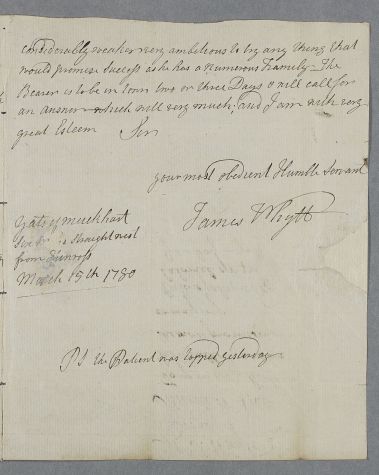 considerably weaker very ambitious to try any thing that
would promise success as he has a Numerous Family. The
Bearer is to be in Town two or three Days & will call for
an Answer which will very much, and I am with very
great Esteem Sir
your most obedient Humble Servant
James Whytt
Yats of muckhart
straight west
from Kinross
March 15th 1780
PS the Patient was tapped yesterday